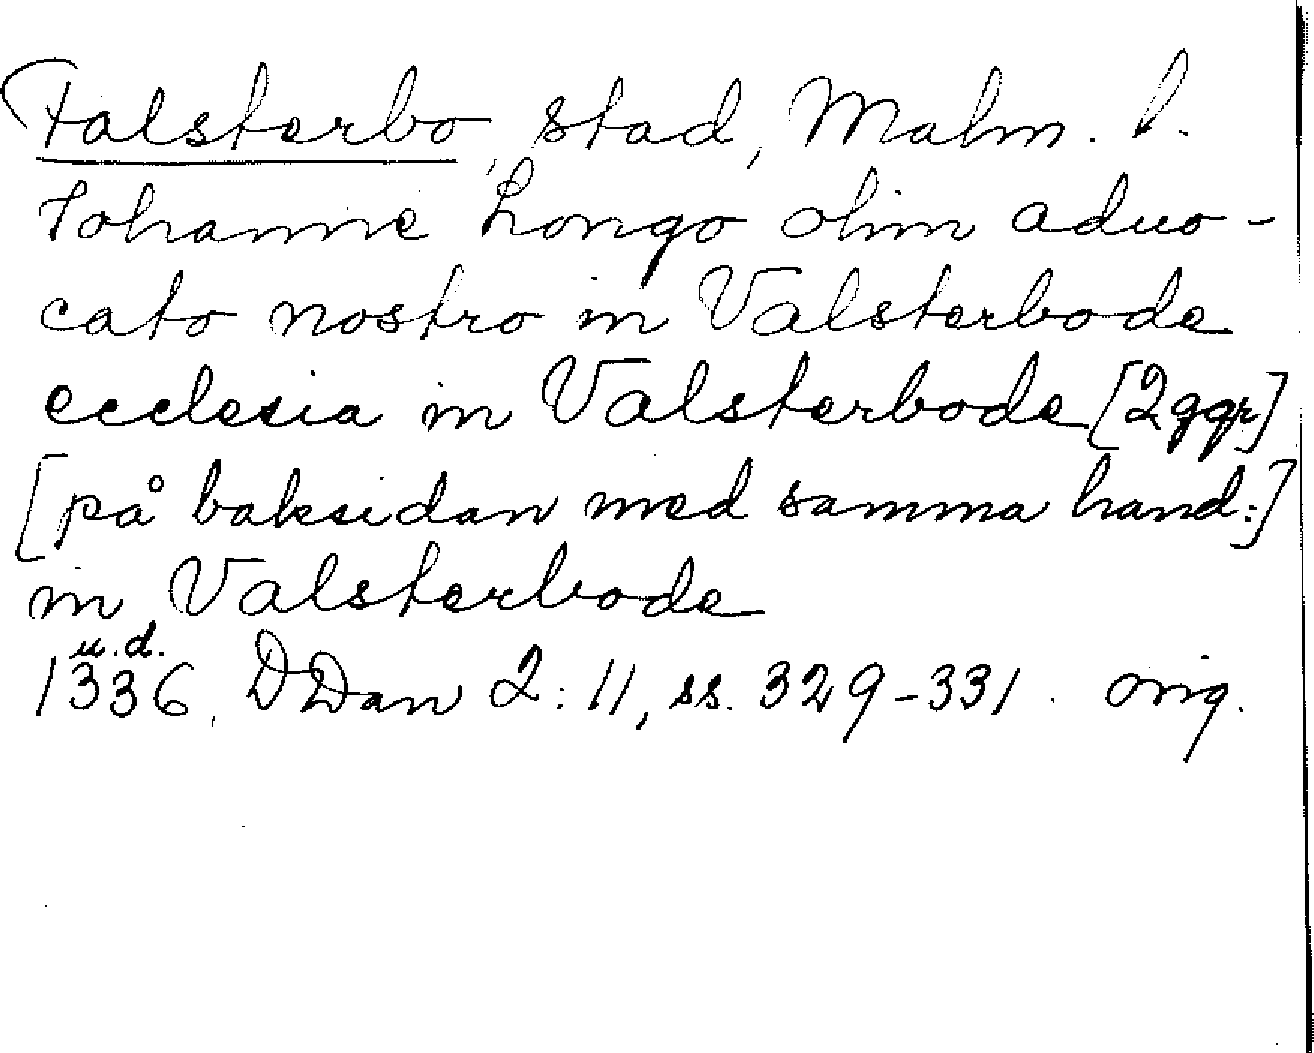 Falsterbo, stad, Malm. l.
Johanne Longo olim aduo-
cato nostro in Valsterbode
ecclesia in Valsterbode [2ggr]
[på baksidan med samma hand:]
in Valsterbode
u.d.
1336, DDan 2: 11, ss. 329-331. orig.